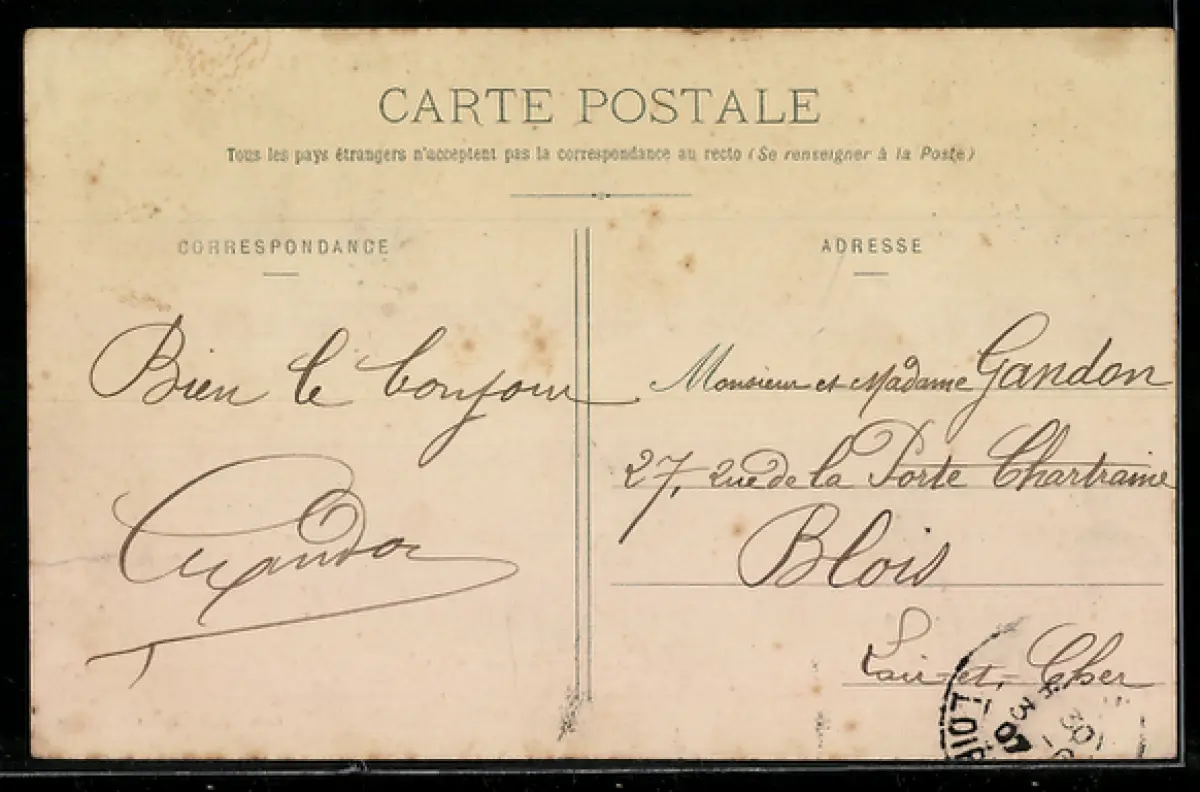 CARTE POSTALE
Tous les pays étrangers n'acceptent pas la correspondance au recto (Se renseigner à la Poste)
CORRESPONDANCE
Bien le bonjour
ADRESSE
Monsieur et Madame Gandon
27, rue de la Porte Chartraine
Blois
Loir-et-Cher
30
3
07